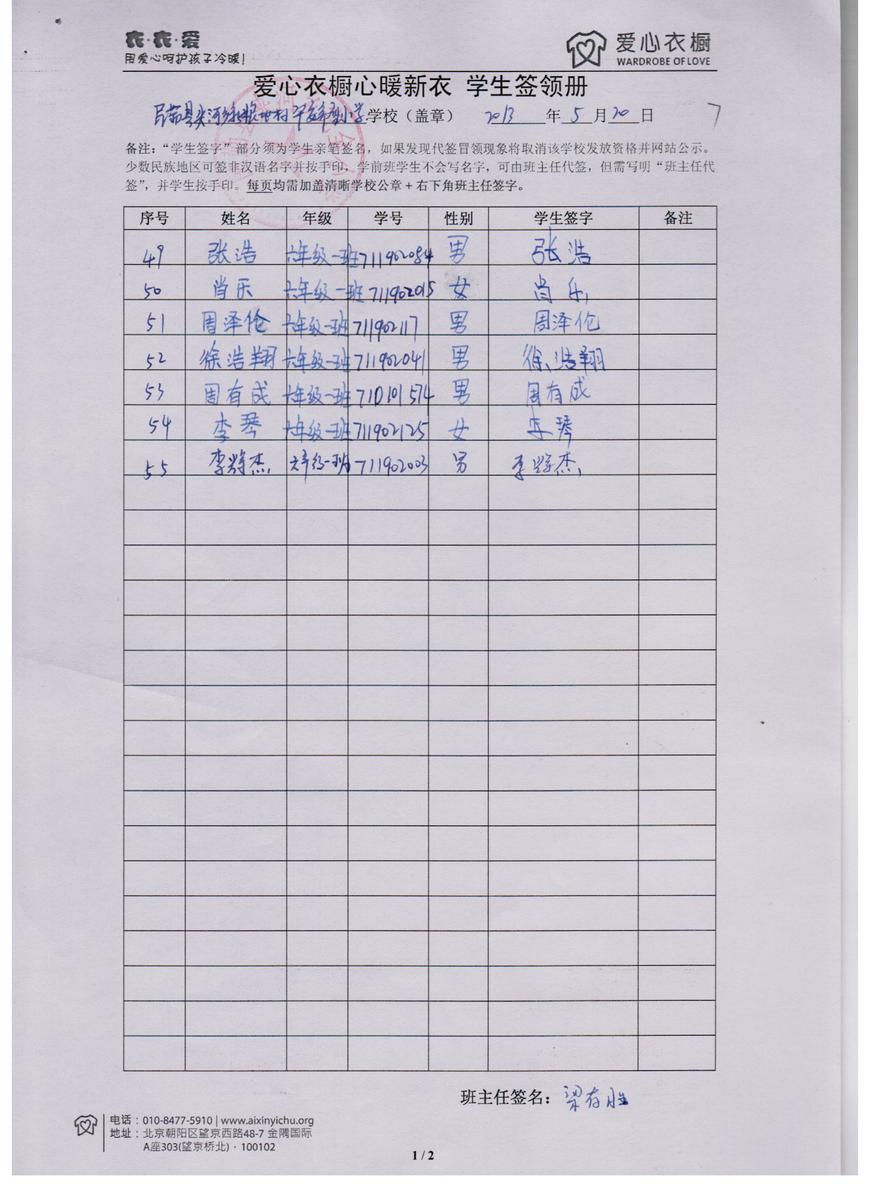 衣·衣·爱
用爱心呵护孩子冷暖!
爱心衣橱
WARDROBE OF LOVE
爱心衣橱心暖新衣 学生签领册
学校（盖章） 2013 年 5 月 20 日 7
备注：“学生签字”部分须为学生亲笔签名，如果发现代签冒领现象将取消该学校发放资格并网站公示。
少数民族地区可签非汉语名字并按手印，学前班学生不会写名字，可由班主任代签，但需写明“班主任代
签”，并学生按手印。每页均需加盖清晰学校公章+右下角班主任签字。
序号 姓名 年级 学号 性别 学生签字 备注
49 张浩 六年级一班 711902084 男 张浩
50 肖乐 六年级一班 711902015 女 肖乐
51 周泽伦 六年级一班 711902117 男 周泽伦
52 徐浩翔 六年级一班 711902041 男 徐浩翔
53 周有成 六年级一班 710101574 男 周有成
54 李琴 六年级一班 711902125 女 李琴
55 李将杰 六年级一班 711902003 男 李将杰
班主任签名：梁存胜
电话：010-8477-5910 | www.aixinyichu.org
地址：北京朝阳区望京西路48-7 金隅国际
A座303(望京桥北)·100102
1 / 2